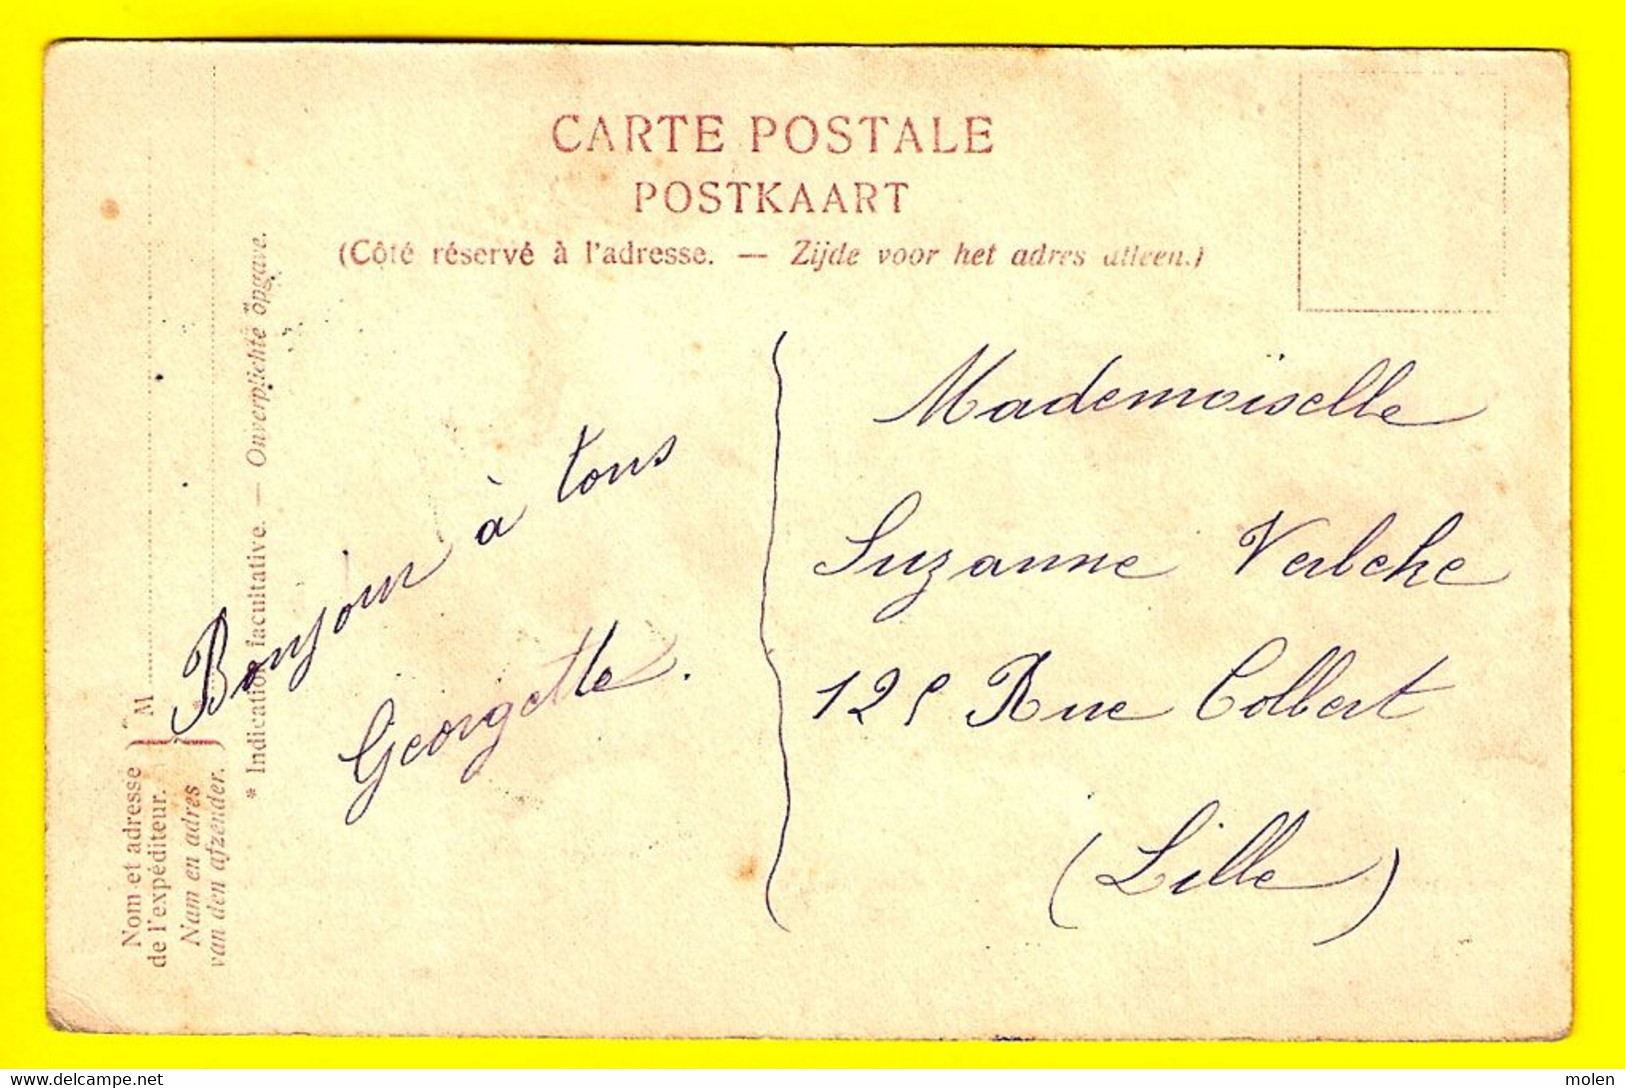 CARTE POSTALE
POSTKAART
(Côté réservé à l'adresse. — Zijde voor het adres alleen.)
Nom et adresse
de l'expéditeur.
Nam en adres
van den afzender.
M
*
* Indication facultative. — Onverplichte opgave.
Bonjour à tous
Georgette.
Mademoiselle
Suzanne
125 Rue Colbert
(Lille)
www.delcampe.net
molen